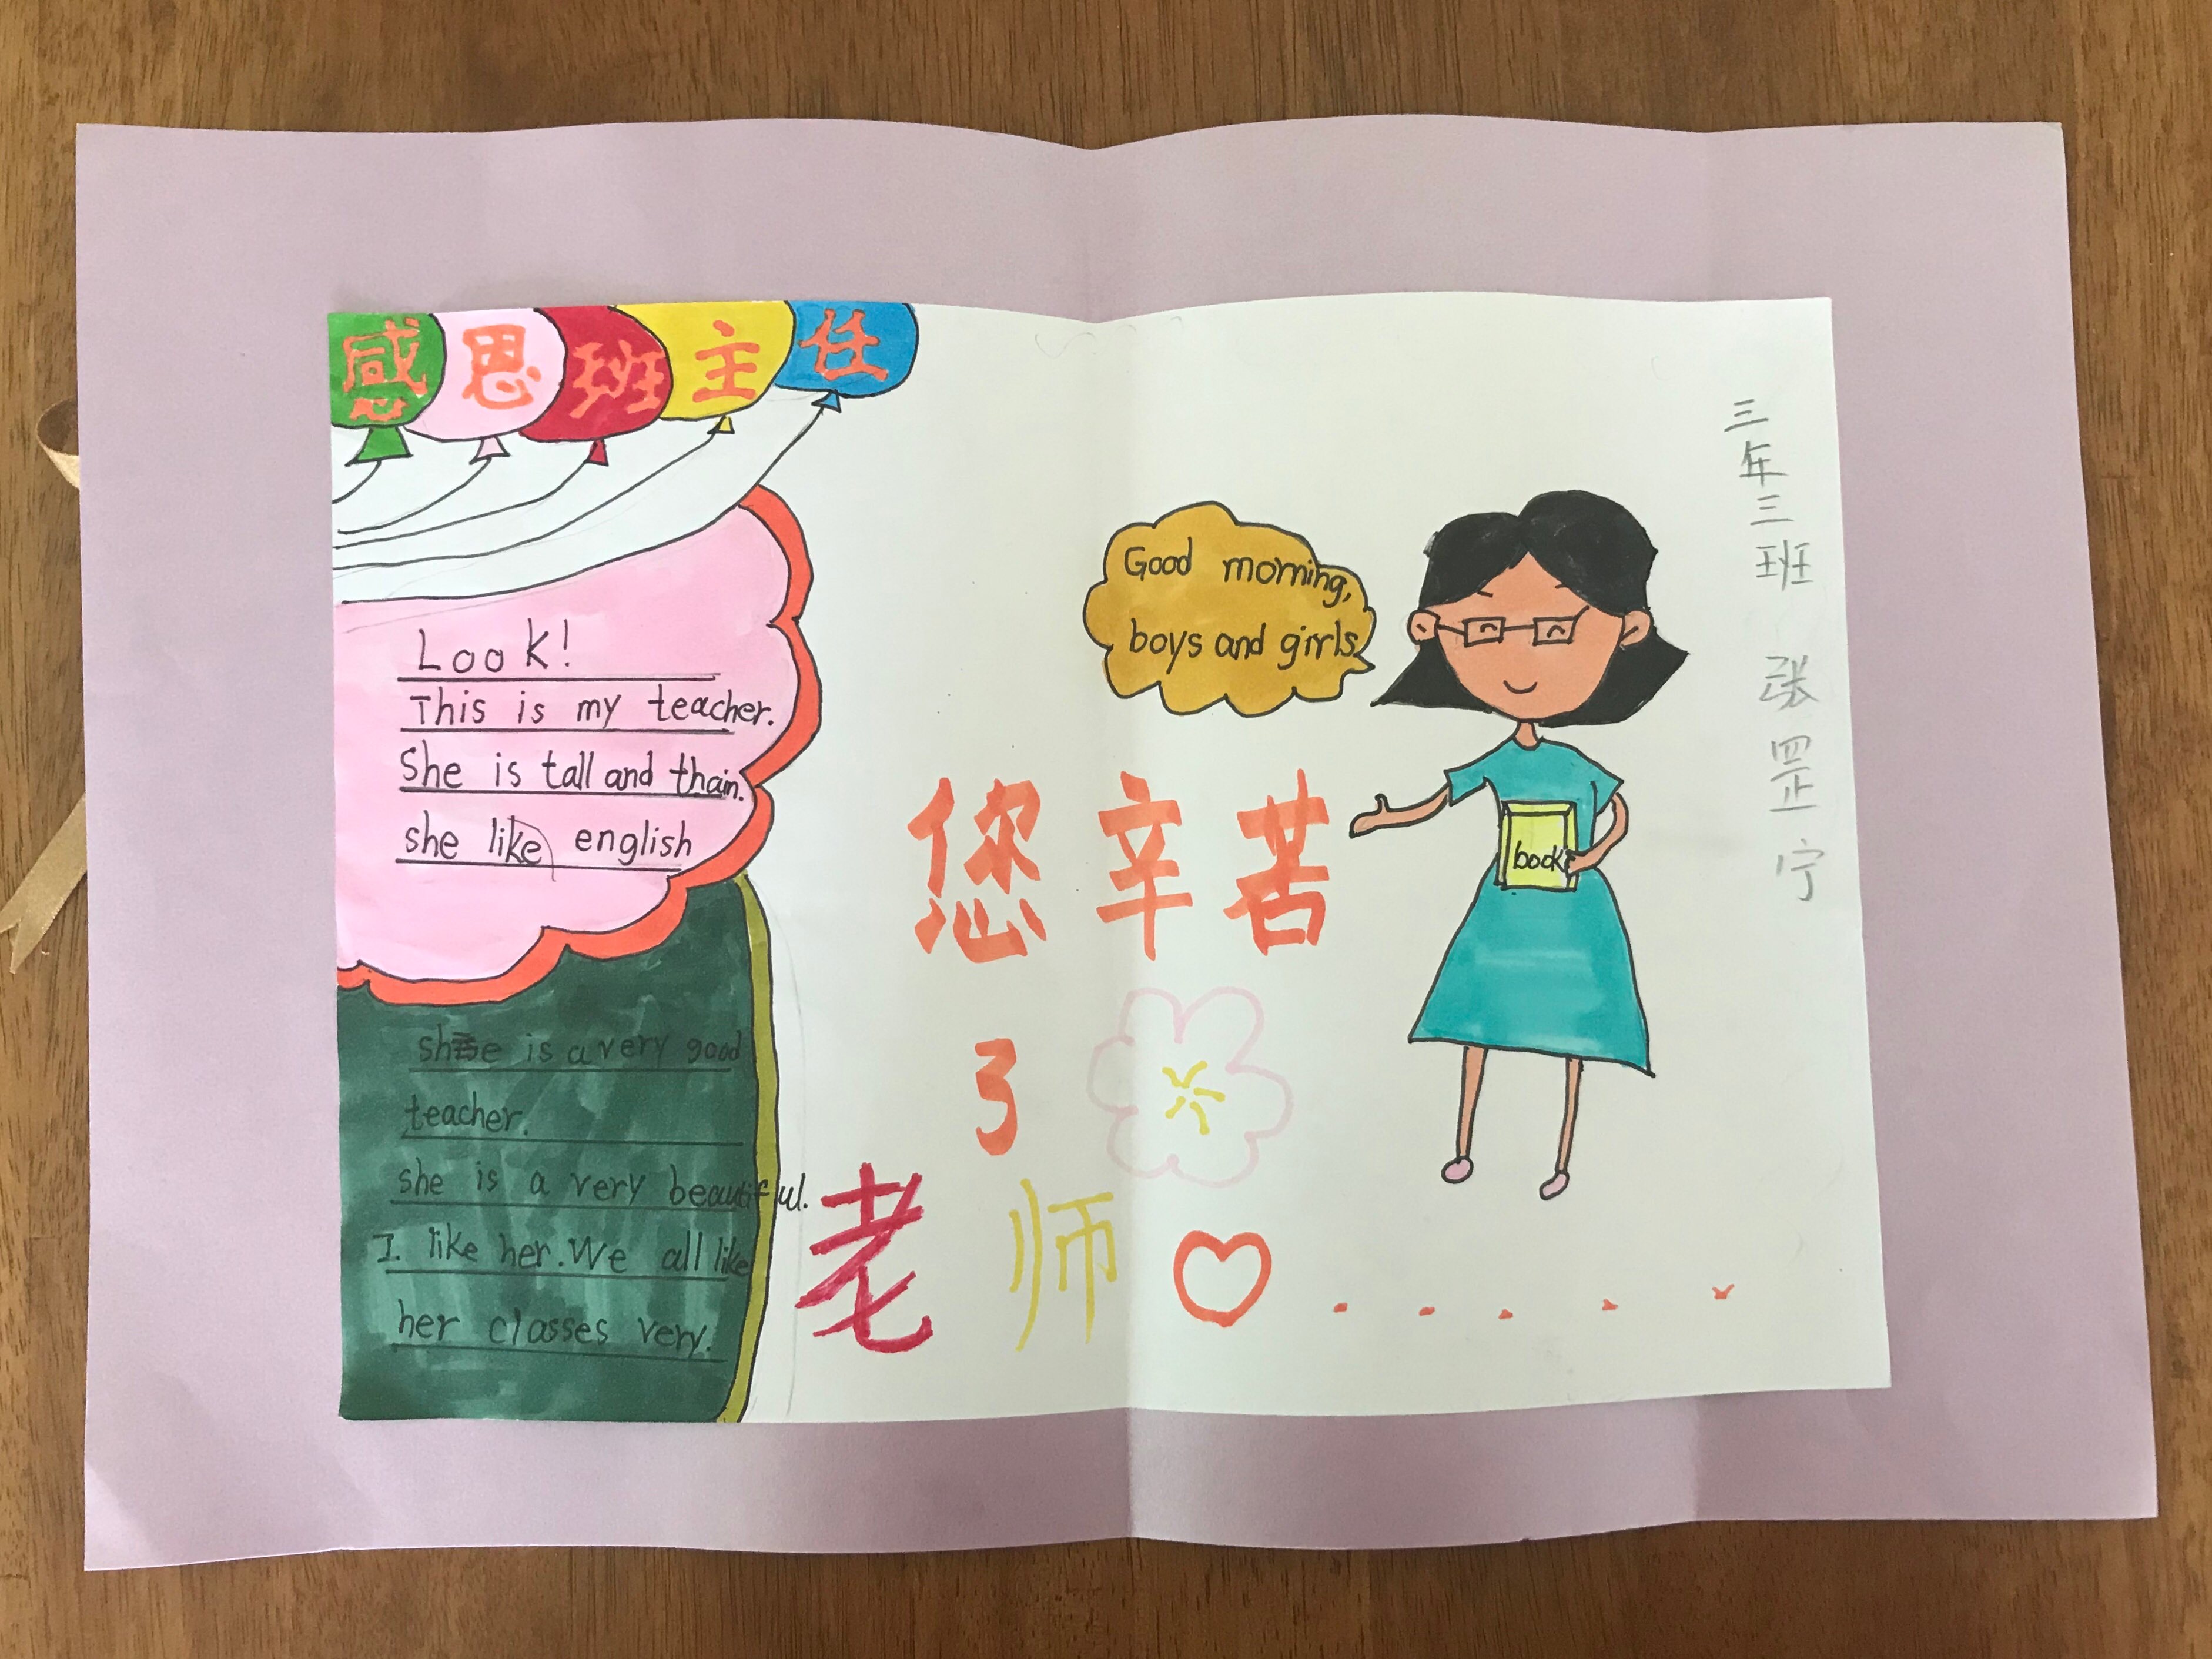 感恩班主任
Look!
This is my teacher.
She is tall and thain.
she like english
she is a very good
teacher.
she is a very beautiful.
I like her. We all like
her classes very.
Good morning,
boys and girls
book
您辛苦
了
老师
三年三班 张罡宁